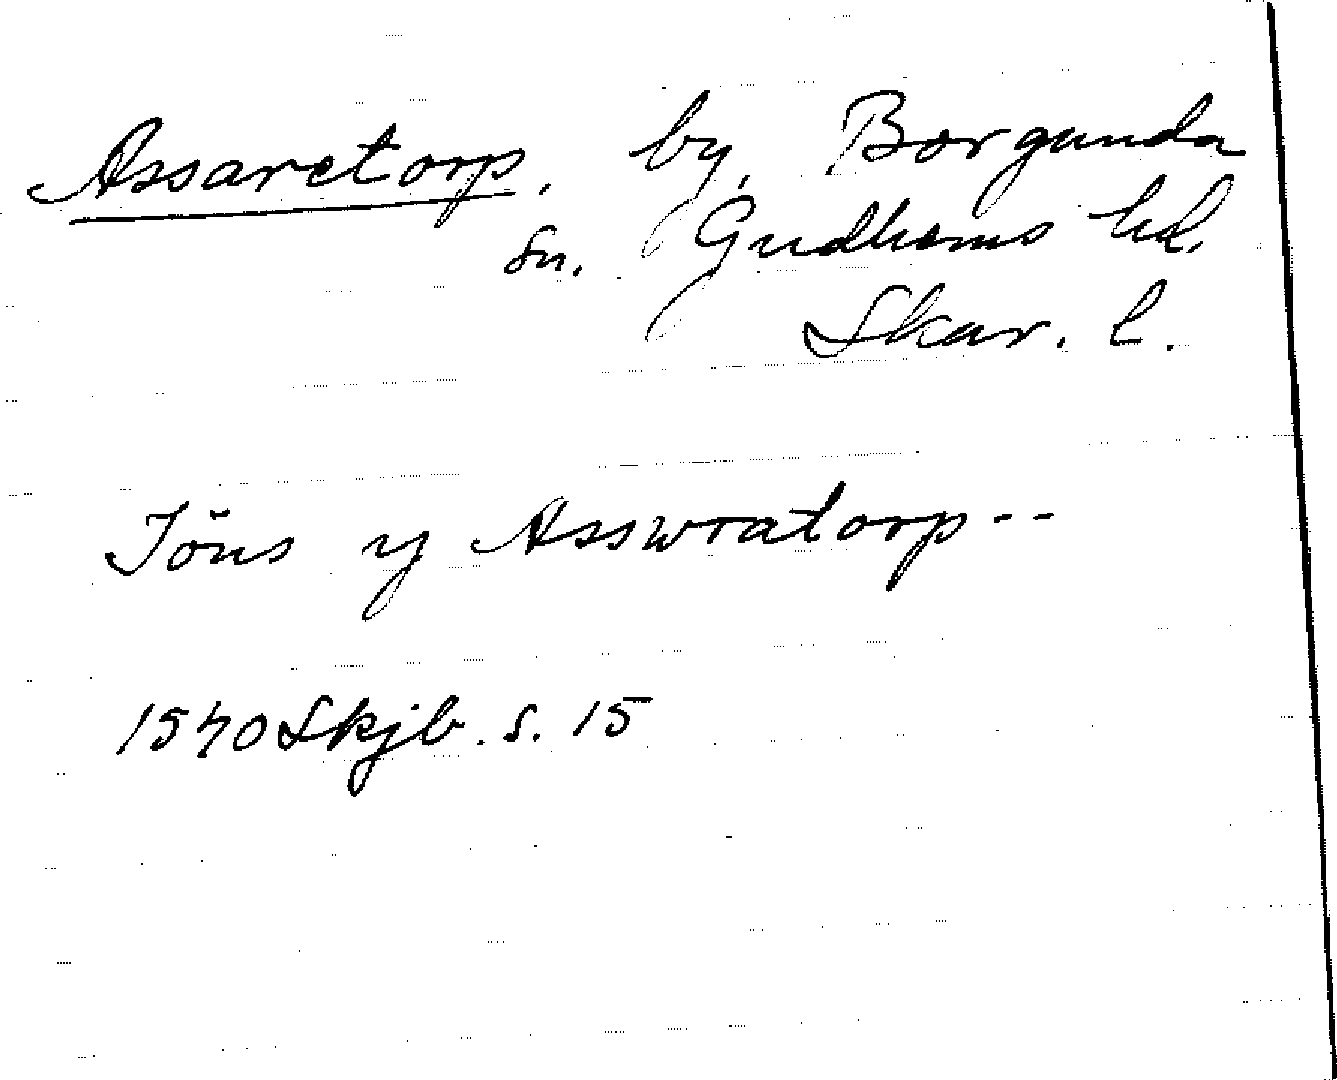 Assaretorp, by, Borgunda
sn. Gudhems hd.
Skar. l.
Jöns y Asswratorp--
1540 Skjb. s. 15